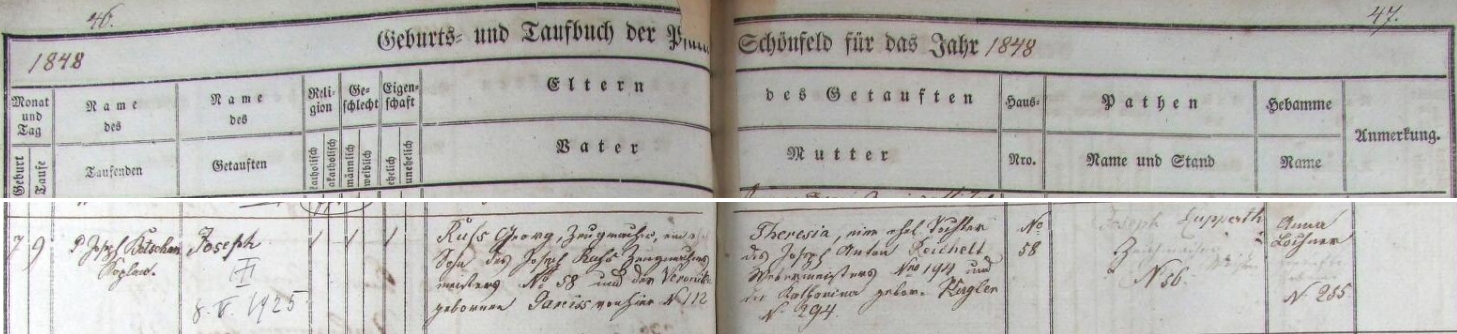 46.
47.
1848
Geburts- und Taufbuch der
Schönfeld für das Jahr 1848
Monat und Tag
Geburt
Taufe
Name des
Taufenden
Name des
Getauften
Religion
katholisch
akatholisch
Geschlecht
männlich
weiblich
Eigenschaft
ehelich
unehelich
Eltern
Vater
des Getauften
Mutter
Haus-
Nro.
Pathen
Name und Stand
Hebamme
Name
Anmerkung.
7 9
P. Joseph
Kaplan.
Joseph
8. V. 1925
1 1 1
Rufs Georg, Zeugmacher, ein
Sohn des Joseph Rufs Zeugmacher
meisters No 58 und der Veronika
gebornen von hier N 112
Theresia, eine ehel. Tochter
des Joseph Anton Reichelt
Webermeisters Nro 194 und
der Katharina gebor. Kugler
N. 294.
No
58
Joseph Lupperth
N 56.
Anna
Loisner
N. 285